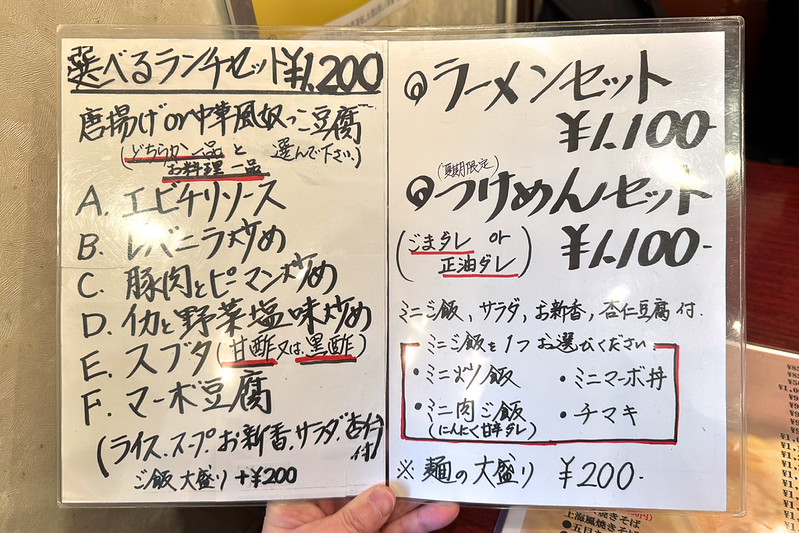 選べるランチセット¥1,200
唐揚げor中華風奴っこ豆腐
(どちらか一品と 選んで下さい)
お料理一品
A. エビチリソース
B. レバニラ炒め
C. 豚肉とピーマン炒め
D. イカと野菜塩味炒め
E. スブタ(甘酢又は黒酢)
F. マーボ豆腐
(ライス、スープ、お新香、サラダ、杏仁付)
ご飯大盛り+¥200
◎ラーメンセット
¥1.100-
(夏期限定)
◎つけめんセット
(ごまダレ or 正油ダレ) ¥1.100-
ミニご飯、サラダ、お新香、杏仁豆腐付.
ミニご飯を1つお選びください
・ミニ炒飯 ・ミニマーボ丼
・ミニ肉ご飯 ・チマキ
(にんにく甘辛ダレ)
※麺の大盛り ¥200-
上海風焼きそば